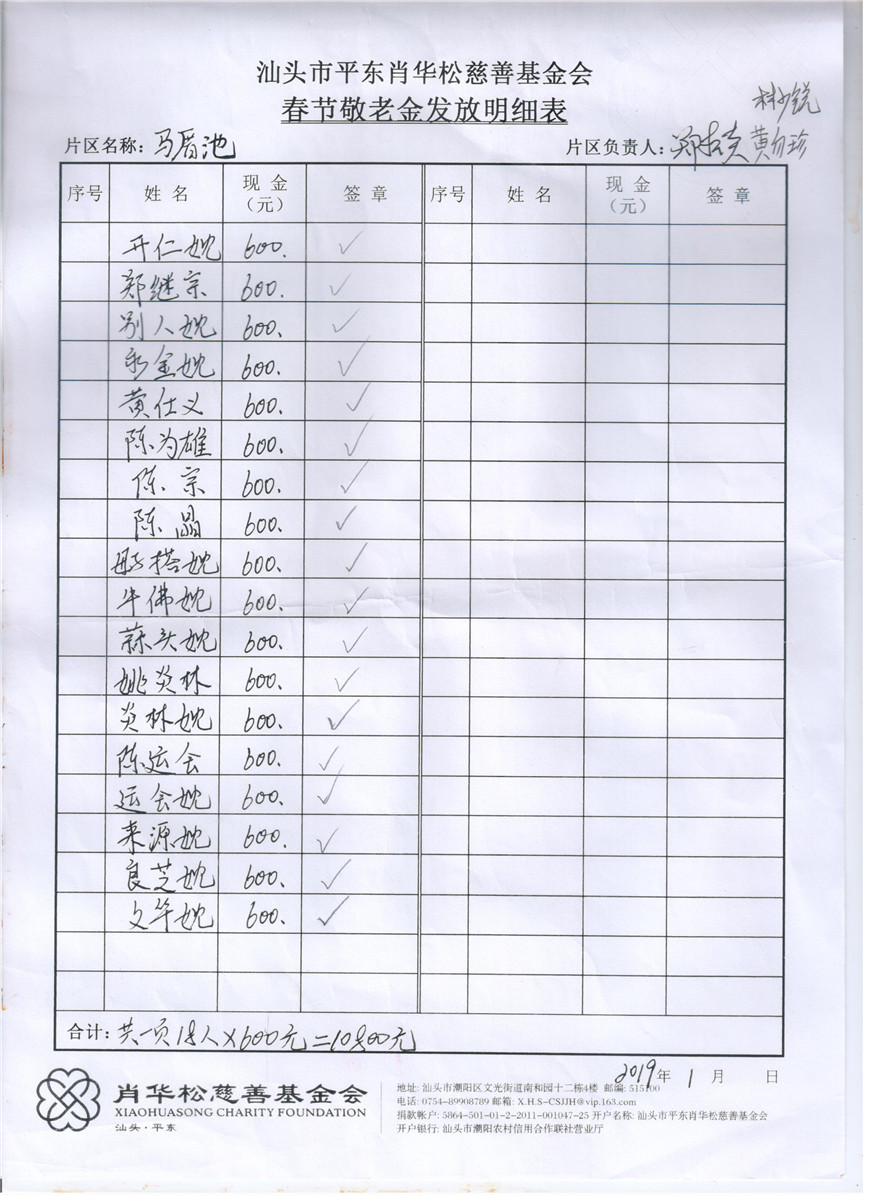 汕头市平东肖华松慈善基金会
春节敬老金发放明细表
片区名称: 马厝池 片区负责人: 郑 黄 珍
序号 姓名 现金(元) 签章 序号 姓名 现金(元) 签章
开仁婏 600. ✓
郑继宗 600. ✓
别人婏 600. ✓
金婏 600. ✓
黄仕义 600. ✓
陈为雄 600. ✓
陈宗 600. ✓
陈晶 600. ✓
搭婏 600. ✓
牛佛婏 600. ✓
蒜头婏 600. ✓
姚炎林 600. ✓
炎林婏 600. ✓
陈运会 600. ✓
运会婏 600. ✓
来源婏 600. ✓
良芝婏 600. ✓
文华婏 600. ✓
合计: 共一页18人×600元=10800元
2019年 1月 日
肖华松慈善基金会
XIAOHUASONG CHARITY FOUNDATION
汕头·平东
地址: 汕头市潮阳区文光街道南和园十二栋4楼 邮编: 515100
电话: 0754-89908789 邮箱: X.H.S-CSJJH@vip.163.com
捐款帐户: 5864-501-01-2-2011-001047-25 开户名称: 汕头市平东肖华松慈善基金会
开户银行: 汕头市潮阳农村信用合作联社营业厅